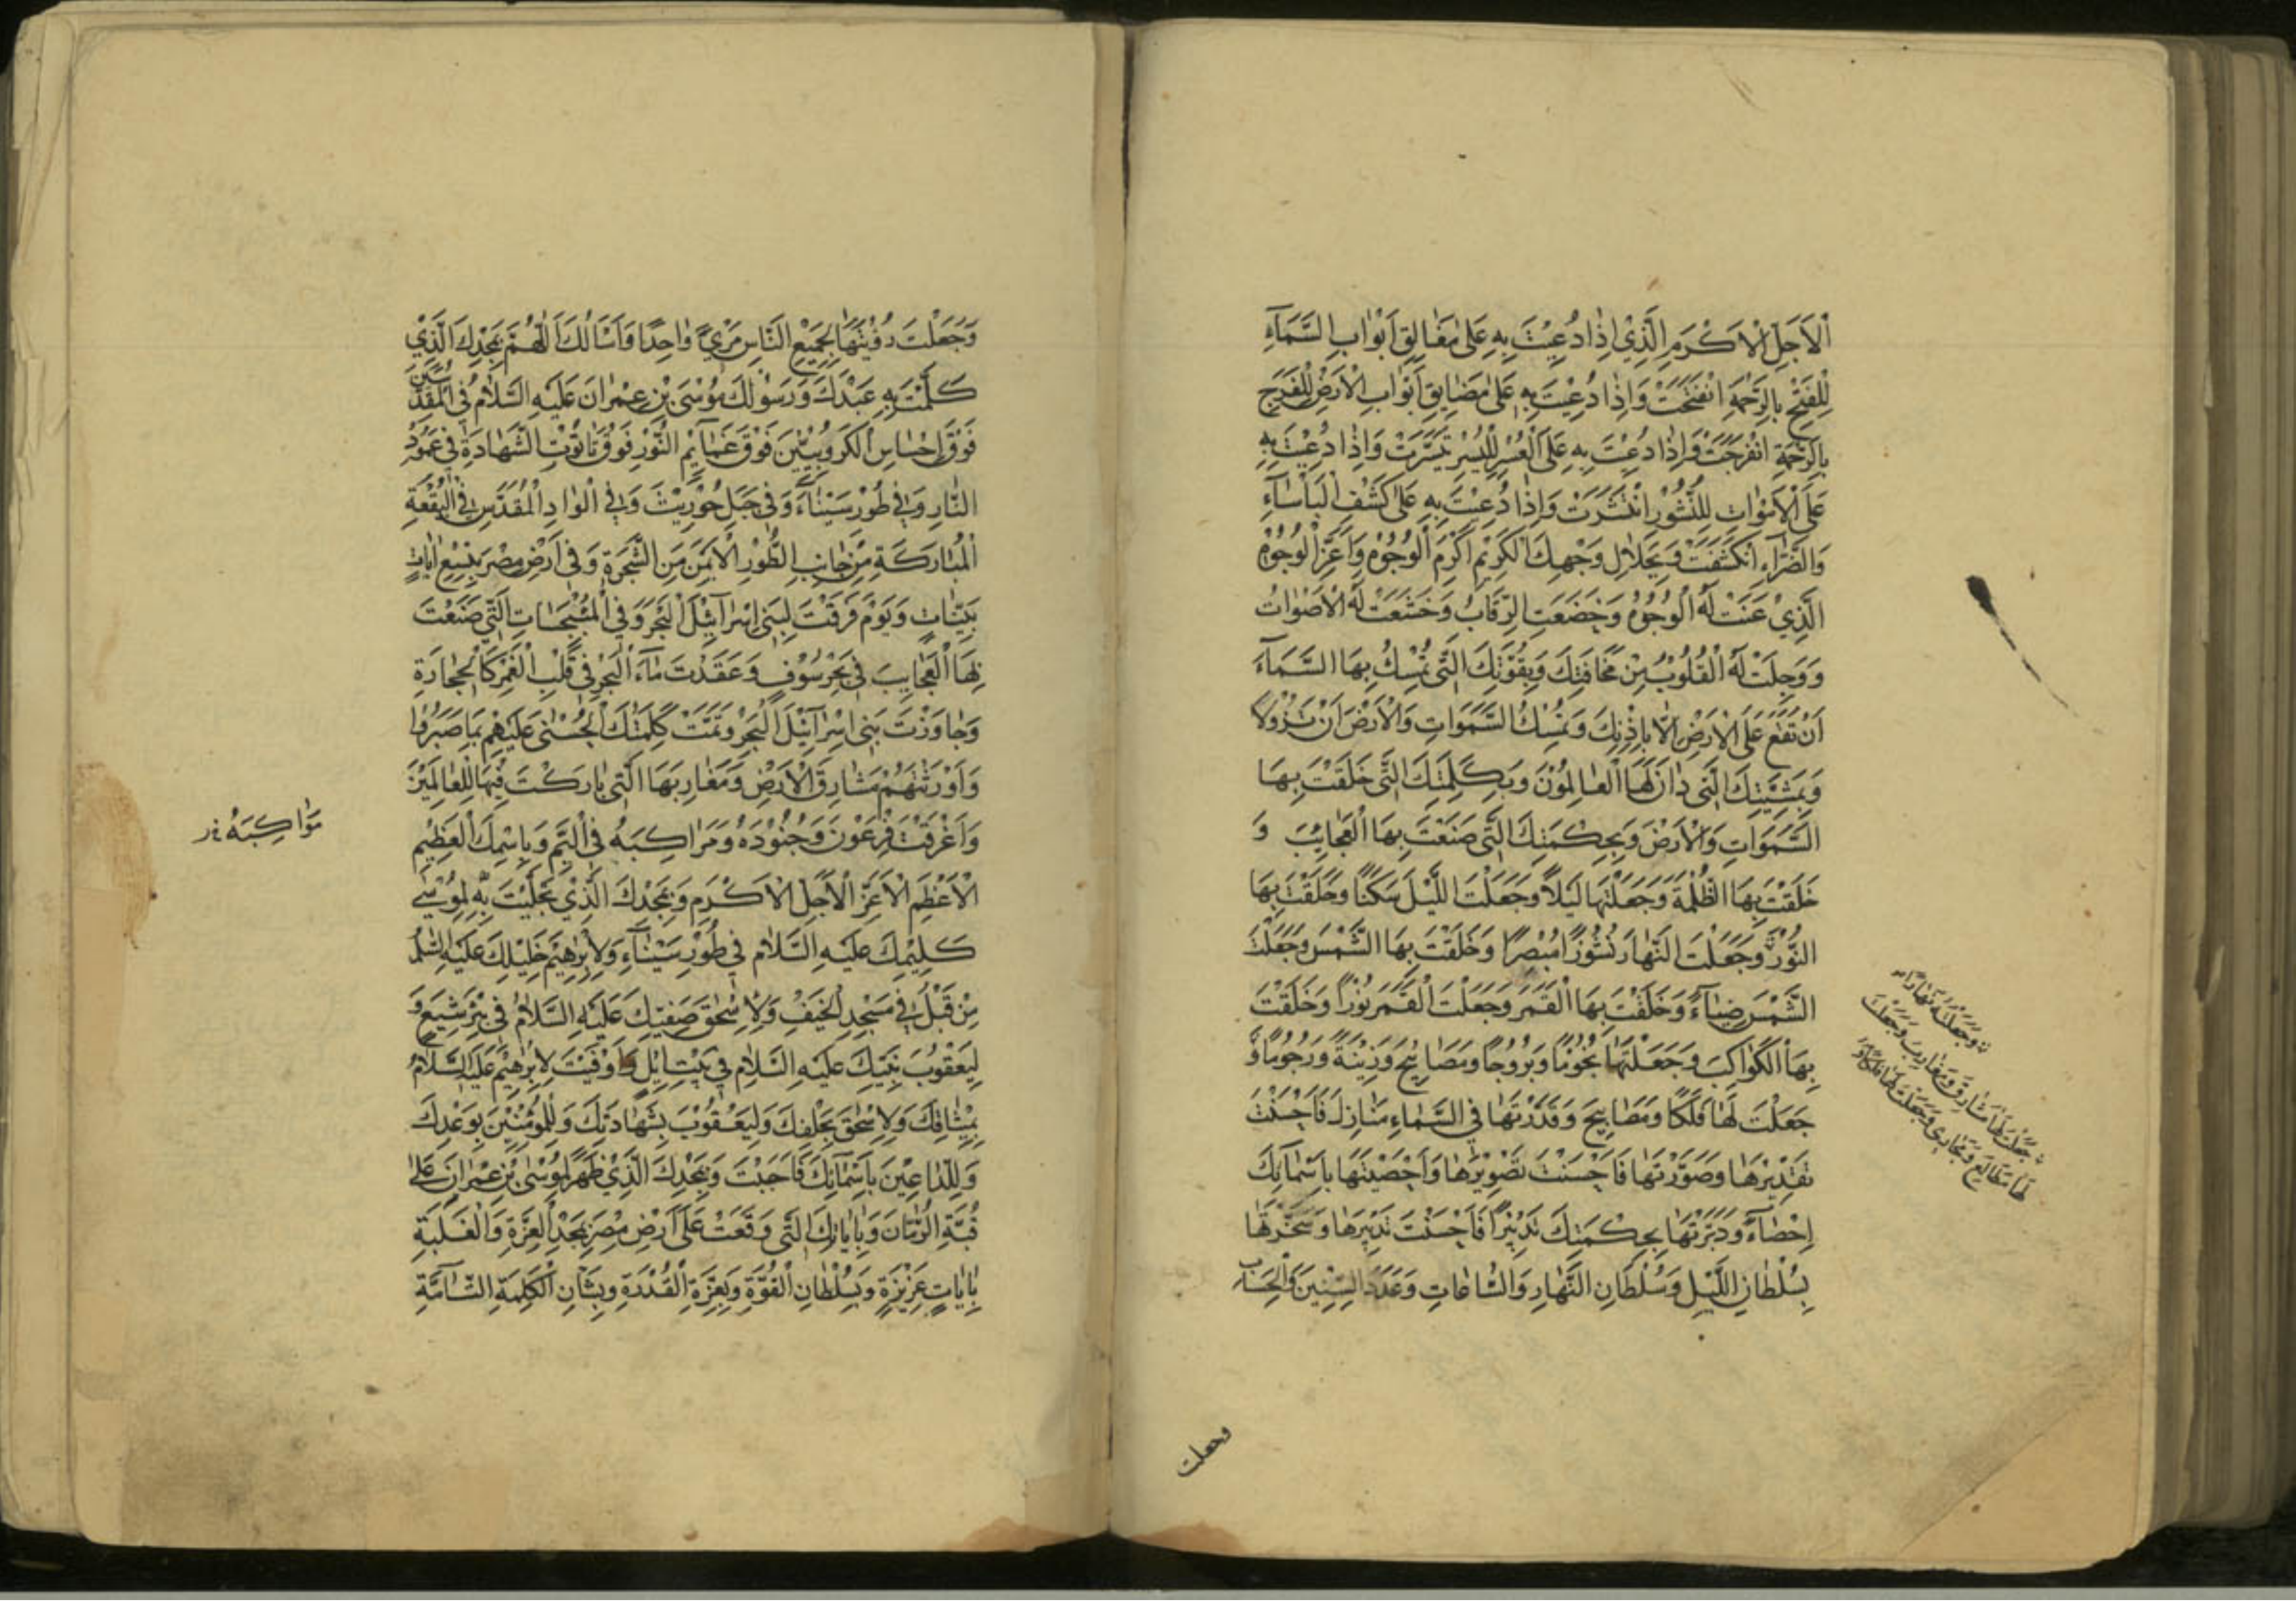 اَلْاَجَلِّ الْاَكْرَمِ الَّذِيْ اِذَا دُعِيْتَ بِهِ عَلٰى مَغَالِقِ اَبْوَابِ السَّمَآءِ
لِلْفَتْحِ بِالرَّحْمَةِ انْفَتَحَتْ وَاِذَا دُعِيْتَ بِهِ عَلٰى مَضَايِقِ اَبْوَابِ الْاَرْضِ لِلْفَرَجِ
بِالرَّحْمَةِ انْفَرَجَتْ وَاِذَا دُعِيْتَ بِهِ عَلَى الْعُسْرِ لِلْيُسْرِ تَيَسَّرَتْ وَاِذَا دُعِيْتَ بِهِ
عَلَى الْاَمْوَاتِ لِلنُّشُوْرِ انْتَشَرَتْ وَاِذَا دُعِيْتَ بِهِ عَلٰى كَشْفِ الْبَأْسَآءِ
وَالضَّرَّآءِ انْكَشَفَتْ وَبِجَلَالِ وَجْهِكَ الْكَرِيْمِ اَكْرَمِ الْوُجُوْهِ وَاَعَزِّ الْوُجُوْهِ
الَّذِيْ عَنَتْ لَهُ الْوُجُوْهُ وَخَضَعَتِ الرِّقَابُ وَخَشَعَتْ لَهُ الْاَصْوَاتُ
وَوَجِلَتْ لَهُ الْقُلُوْبُ مِنْ مَخَافَتِكَ وَبِقُوَّتِكَ الَّتِي تُمْسِكُ بِهَا السَّمَآءَ
اَنْ تَقَعَ عَلَى الْاَرْضِ اِلَّا بِاِذْنِكَ وَتُمْسِكُ السَّمَوَاتِ وَالْاَرْضَ اَنْ تَزُوْلَا
وَبِمَشِيَّتِكَ الَّتِي دَانَ لَهَا الْعَالَمُوْنَ وَبِكَلِمَتِكَ الَّتِي خَلَقْتَ بِهَا
السَّمَوَاتِ وَالْاَرْضَ وَبِحِكْمَتِكَ الَّتِي صَنَعْتَ بِهَا الْعَجَايِبَ وَ
خَلَقْتَ بِهَا الظُّلْمَةَ وَجَعَلْتَهَا لَيْلًا وَجَعَلْتَ اللَّيْلَ سَكَنًا وَخَلَقْتَ بِهَا
النُّوْرَ وَجَعَلْتَ النَّهَارَ نُشُوْرًا مُبْصِرًا وَخَلَقْتَ بِهَا الشَّمْسَ وَجَعَلْتَ
الشَّمْسَ ضِيَآءً وَخَلَقْتَ بِهَا الْقَمَرَ وَجَعَلْتَ الْقَمَرَ نُوْرًا وَخَلَقْتَ
بِهَا الْكَوَاكِبَ وَجَعَلْتَهَا نُجُوْمًا وَبُرُوْجًا وَمَصَابِيْحَ وَزِيْنَةً وَرُجُوْمًا وَ
جَعَلْتَ لَهَا فَلَكًا وَمَصَابِيحَ وَقَدَّرْتَهَا فِي السَّمَاءِ مَنَازِلَ فَاَحْسَنْتَ
تَقْدِيْرَهَا وَصَوَّرْتَهَا فَاَحْسَنْتَ تَصْوِيْرَهَا وَاَحْصَيْتَهَا بِاَسْمَآئِكَ
اِحْصَآءً وَدَبَّرْتَهَا بِحِكْمَتِكَ تَدْبِيْرًا فَاَحْسَنْتَ تَدْبِيْرَهَا وَسَخَّرْتَهَا
بِسُلْطَانِ اللَّيْلِ وَسُلْطَانِ النَّهَارِ وَالسَّاعَاتِ وَعَدَدَ السِّنِيْنَ وَالْحِسَابِ
وَجَعَلْتَهُ نَهَارًا
جَعَلْتَ لَهَا مَشَارِقَ وَمَغَارِبَ وَجَعَلْتَ
لَهَا مَطَالِعَ وَمَجَارِيَ وَجَعَلْتَ لَهَا فَلَكًا وَ
وجعلت
وَجَعَلْتَ رُؤْيَتَهَا لِجَمِيْعِ النَّاسِ مَرْئً وَاحِدًا وَاَسْاَلُكَ اَللّٰهُمَّ بِمَجْدِكَ الَّذِيْ
كَلَّمْتَ بِهِ عَبْدَكَ وَرَسُوْلَكَ مُوْسَى بْنَ عِمْرَانَ عَلَيْهِ السَّلَامُ فِي الْمُقَدَّسِيْنَ
فَوْقَ اِحْسَاسِ الْكَرُوْبِيِّيْنَ فَوْقَ غَمَآئِمِ النُّوْرِ فَوْقَ تَابُوْتِ الشَّهَادَةِ فِي عَمُوْدِ
النَّارِ وَفِي طُوْرِ سَيْنَآءَ وَفِي جَبَلِ حُوْرِيْثَ وَفِي الْوَادِ الْمُقَدَّسِ فِي الْبُقْعَةِ
الْمُبَارَكَةِ مِنْ جَانِبِ الطُّوْرِ الْاَيْمَنِ مِنَ الشَّجَرَةِ وَفِي اَرْضِ مِصْرَ بِتِسْعِ اٰيَاتٍ
بَيِّنَاتٍ وَيَوْمَ فَرَقْتَ لِبَنِي اِسْرَآئِيْلَ الْبَحْرَ وَفِي الْمُنْبَجِسَاتِ الَّتِي صَنَعْتَ
بِهَا الْعَجَايِبَ فِي بَحْرِ سُوْفٍ وَعَقَدْتَ مَآءَ الْبَحْرِ فِي قَلْبِ الْغَمْرِ كَالْحِجَارَةِ
وَجَاوَزْتَ بِبَنِي اِسْرَآئِيْلَ الْبَحْرَ وَتَمَّتْ كَلِمَتُكَ الْحُسْنٰى عَلَيْهِمْ بِمَا صَبَرُوْا
وَاَوْرَثْتَهُمْ مَشَارِقَ الْاَرْضِ وَمَغَارِبَهَا الَّتِي بَارَكْتَ فِيْهَا لِلْعَالَمِيْنَ
وَاَغْرَقْتَ فِرْعَوْنَ وَجُنُوْدَهُ وَمَرَاكِبَهُ فِي الْيَمِّ وَبِاسْمِكَ الْعَظِيْمِ
الْاَعْظَمِ الْاَعَزِّ الْاَجَلِّ الْاَكْرَمِ وَبِمَجْدِكَ الَّذِيْ تَجَلَّيْتَ بِهِ لِمُوْسٰى
كَلِيْمِكَ عَلَيْهِ السَّلَامُ فِي طُوْرِ سَيْنَآءَ وَلِاِبْرٰهِيْمَ خَلِيْلِكَ عَلَيْهِ السَّلَمُ
مِنْ قَبْلُ فِي مَسْجِدِ الْخَيْفِ وَلِاِسْحٰقَ صَفِيِّكَ عَلَيْهِ السَّلَامُ فِي بِئْرِ شِيَعٍ وَ
لِيَعْقُوْبَ نَبِيِّكَ عَلَيْهِ السَّلَامُ فِي بَيْتِ اِيْلٍ وَاَوْفَيْتَ لِاِبْرٰهِيْمَ عَلَيْهِ السَّلَامُ
بِمِيْثَاقِكَ وَلِاِسْحٰقَ بِحَلْفِكَ وَلِيَعْقُوْبَ بِشَهَادَتِكَ وَلِلْمُؤْمِنِيْنَ بِوَعْدِكَ
وَلِلدَّاعِيْنَ بِاَسْمَآئِكَ فَاَجَبْتَ وَبِمَجْدِكَ الَّذِيْ ظَهَرَ لِمُوْسَى بْنِ عِمْرَانَ عَلٰى
قُبَّةِ الرُّمَّانِ وَبِاٰيَاتِكَ الَّتِي وَقَعَتْ عَلٰى اَرْضِ مِصْرَ بِمَجْدِ الْعِزَّةِ وَالْغَلَبَةِ
بِاٰيَاتٍ عَزِيْزَةٍ وَبِسُلْطَانِ الْقُوَّةِ وَبِعِزَّةِ الْقُدْرَةِ وَبِشَاْنِ الْكَلِمَةِ التَّآمَّةِ
مَوَاكِبَهُ